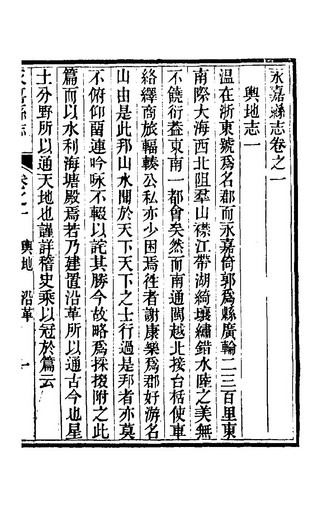 永嘉縣志卷之一
輿地志一
溫在浙東號爲名郡而永嘉倚郭爲縣廣輪二三百里東
南際大海西北阻羣山襟江帶湖綺壤繡錯水陸之美無
不饒衍蓋東南一都會矣然而南通閩越北接台栝使車
絡繹商旅輻輳公私亦少困焉徃者謝康樂爲郡好游名
山由是此邦山水聞於天下天下之士行過是邦者亦莫
不俯仰留連吟咏不輟以詫其勝今故略爲採掇附之此
篇而以水利海塘殿焉若乃建置沿革所以通古今也星
土分野所以通天地也謹詳稽史乘以冠於篇云
永嘉縣志
卷之一 輿地 沿革 一